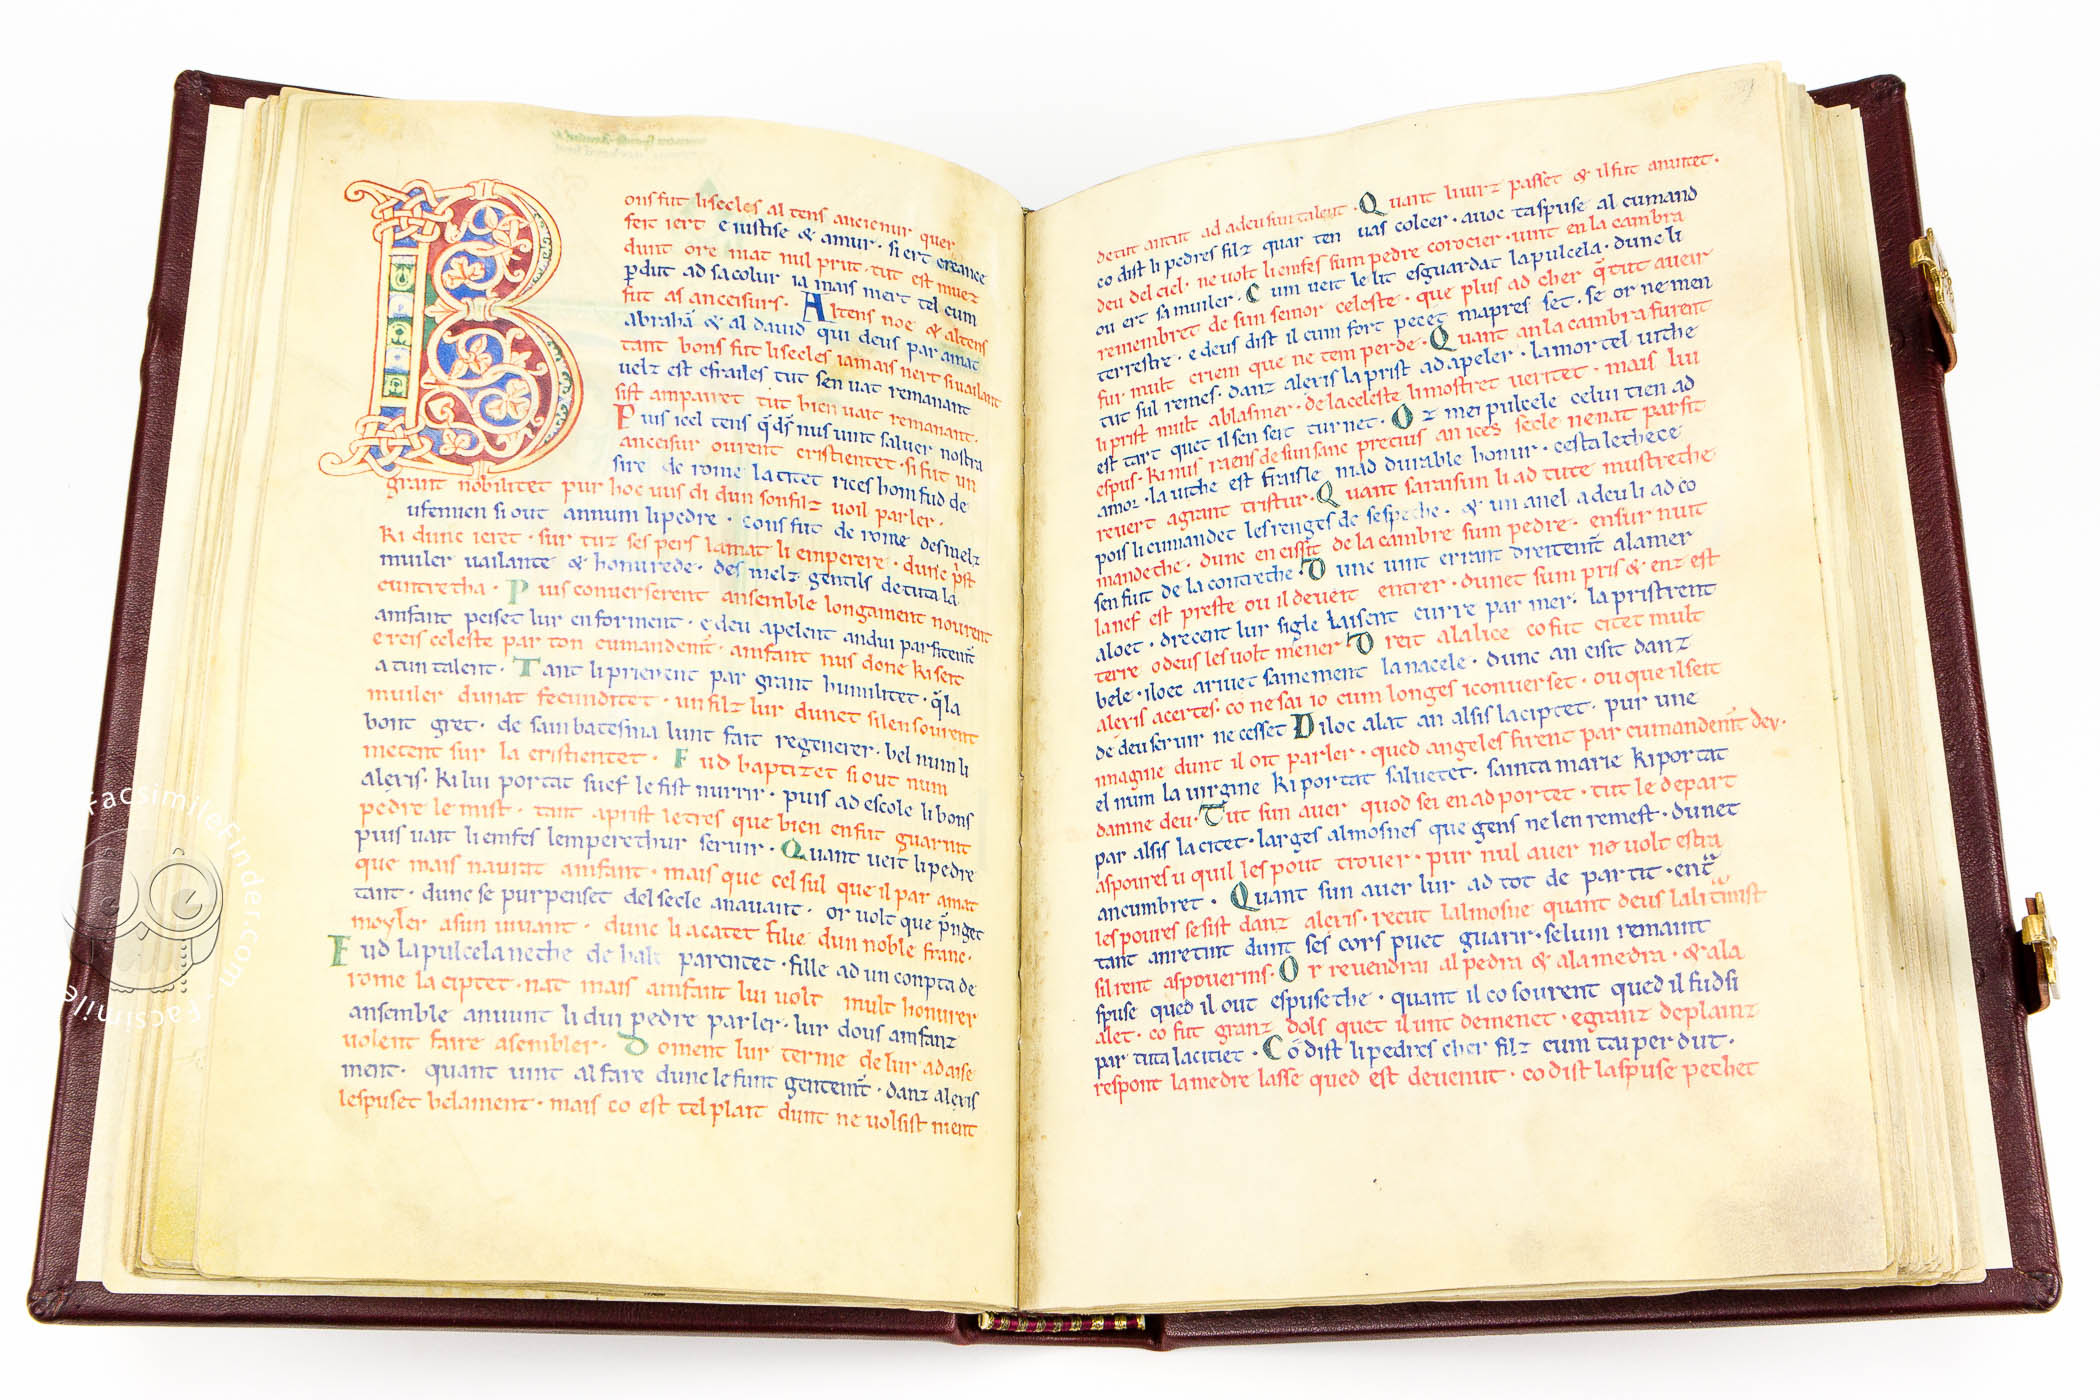 B
ons fut li secles al tens ancienur quer
feit iert e iustise & amur · si ert creance
dunt ore nat nul prut · tut est muez
pdut ad sa colur ia mais niert tel cum
fut as anceisurs · Al tens noe & al tens
abrahā & al david qui deus par amat
tant bons fut li secles iamais nert si vailant
velz est e frailes tut sen vat remanant
sist ampairet tut bien vait remanant ·
Puis icel tens q̄ d̄s nus vint salver nostra
anceisur ourent cristientet · si fut un
sire de rome la citet rices hom fud de
grant nobilitet pur hoc vus di dun son filz voil parler ·
ufemien si out annum li pedre · Cons fut de rome des melz
ki dunc ieret · sur tuz ses pers lamat li emperere · dunc pst
muiler vailante & honurede · des melz gentils de tuta la
cuntretha · Puis converserent ansemble longament nourent
amfant peiset lur en forment · e deu apelent andui parfitemt̄
e reis celeste par ton cumandemt̄ · amfant nus done ki seit
a tun talent · Tant li prierent par grant humilitet · q̄ la
muiler dunat fecunditet · un filz lur dunet si len sourent
bont gret · de sain batesma lunt fait regenerer · bel num li
metent sur la cristientet · Fud baptizet si out num
alexis · ki lui portat suef le fist nurrir · puis ad escole li bons
pedre le mist · tant aprist letres que bien en fut guarnit
puis vait li emfes lemperethur servir · Quant veit li pedre
que mais naurat amfant · mais que cel sul que il par amat
tant · dunc se purpenset del secle anavant · or volt que p̄nget
moyler a sun vivant · dunc li acatet filie dun noble franc ·
Fud la pulcela nethe de halt parentet · fille ad un conpta de
rome la ciptet · nat mais amfant lui volt mult honurer
ansemble anvunt li dui pedre parler · lur dous amfanz
volent faire asembler · Doment lur terme de lur adaise
ment · quant vint al fare dunc le funt gentemt̄ · danz alexis
lespuset belament · mais co est tel plait dunt ne volsist nient
de tut an tut ad a deu sun talent · Quant li iurz passet & il fut anuitet ·
co dist li pedres filz quar ten vas colcer · avoc ta spuse al cumand
deu del ciel · ne volt li emfes sum pedre corocier · vint en la cambra
ou ert sa muiler · Cum veit le lit esguardat la pulcela · dunc li
remembret de sun seinor celeste · que plus ad cher q̄ tut aveir
terrestre · e deus dist il cum fort pecet mapres set · se or ne men
fui mult criem que ne tem perde · Quant an la cambra furent
tut sul remes · danz alexis la prist ad apeler · la mortel vithe
li prist mult a blasmer · de la celeste li mostret veritet · mais lui
est tart quet il sen seit turnet · Oz mei pulcele celui tien ad
espus · ki nus raens de sun sanc precius an ices secle nen at parfit
amor · la vithe est fraisle niad durable honur · cesta lethece
revert a grant tristur · Quant sa raisun li ad tute mustrethe
pois li cumandet les renges de sespethe · & un anel a deu li ad co
mandethe · dunc en eissit de la cambre sum pedre · ensur nuit
sen fuit de la contrethe · Dunc vint errant dreitemt̄ a la mer
la nef est preste ou il deveit entrer · dunet sum pris & enz est
aloet · drecent lur sigle laisent curre par mer · la pristrent
terre o deus les volt mener · Dreit a lalice co fut citet mult
bele · iloec arivet sainement la nacele · dunc an eisit danz
alexis acertes · co ne sai io cum longes i converset · ou que il seit
de deu servir ne cesset Diloc alat an alsis la ciptet · pur une
imagine dunt il oit parler · qued angeles firent par cumandemt̄ deu ·
el num la virgine ki portat salvetet · sainta marie ki portat
damne deu · Tut sun aver quod sei en ad portet · tut le depart
par alsis la citet · larges almosnes que gens ne len remest · dunet
as poures u quil les pout trover · pur nul aver ne volt estra
ancumbret · Quant sun aver lur ad tot departit · ent̄
les poures se sist danz alexis · recut lalmosne quant deus la li trāmist
tant an retint dunt ses cors puet guarir · se lui n remaint
sil rent as poverins · Or revendrai al pedra & a la medra · & a la
spuse qued il out espusethe · quant il co sourent qued il fud si
alet · co fut granz dols quet il unt demenet · e granz deplainz
par tuta la citiet · Cō dist li pedres cher filz cum tai perdut ·
respont la medre lasse qued est devenut · co dist la spuse pechet
FacsimileFinder.com